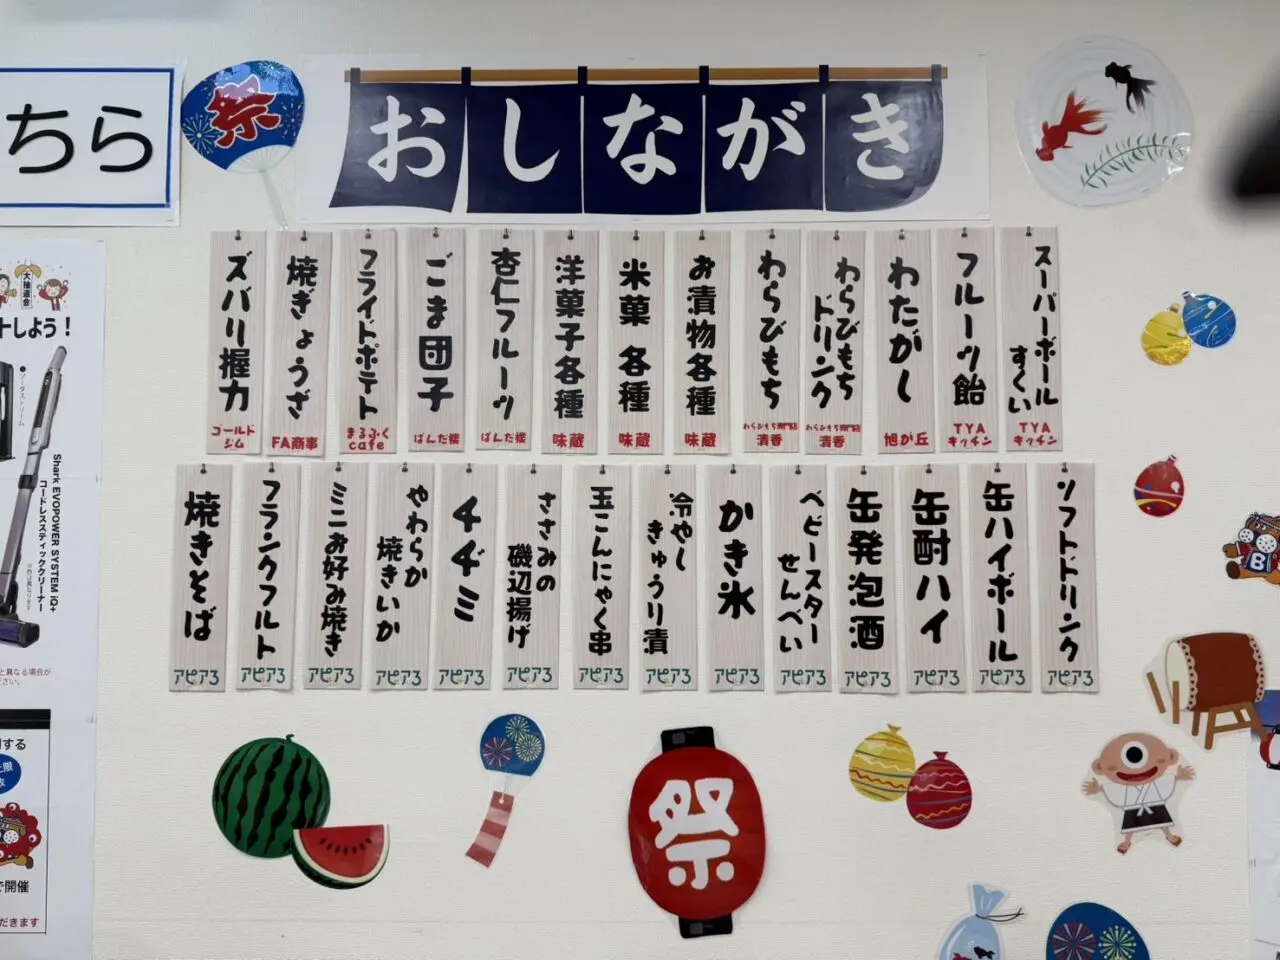 ちら
祭
おしながき
スーパーボール
すくい
TYA
キッチン
フルーツ飴
TYA
キッチン
わたがし
旭が丘
わらびもち
ドリンク
わらびもち専門店
清香
わらびもち
わらびもち専門店
清香
お漬物各種
味蔵
米菓 各種
味蔵
洋菓子各種
味蔵
杏仁フルーツ
ぱんだ楼
ごま団子
ぱんだ楼
フライドポテト
まるふく
cafe
焼ぎょうざ
FA商事
ズバリ握力
ゴールド
ジム
ソフトドリンク
アピア3
缶ハイボール
アピア3
缶酎ハイ
アピア3
缶発泡酒
アピア3
ベビースター
せんべい
アピア3
かき氷
アピア3
冷やし
きゅうり漬
アピア3
玉こんにゃく串
アピア3
ささみの
磯辺揚げ
アピア3
チヂミ
アピア3
やわらか
焼きいか
アピア3
ミニお好み焼き
アピア3
フランクフルト
アピア3
焼きそば
アピア3
祭
大抽選会
しよう！
Shark EVOPOWER SYSTEM iQ+
コードレススティッククリーナー
と異なる場合が
ださい。
する
上限
枚
で開催
だきます
B